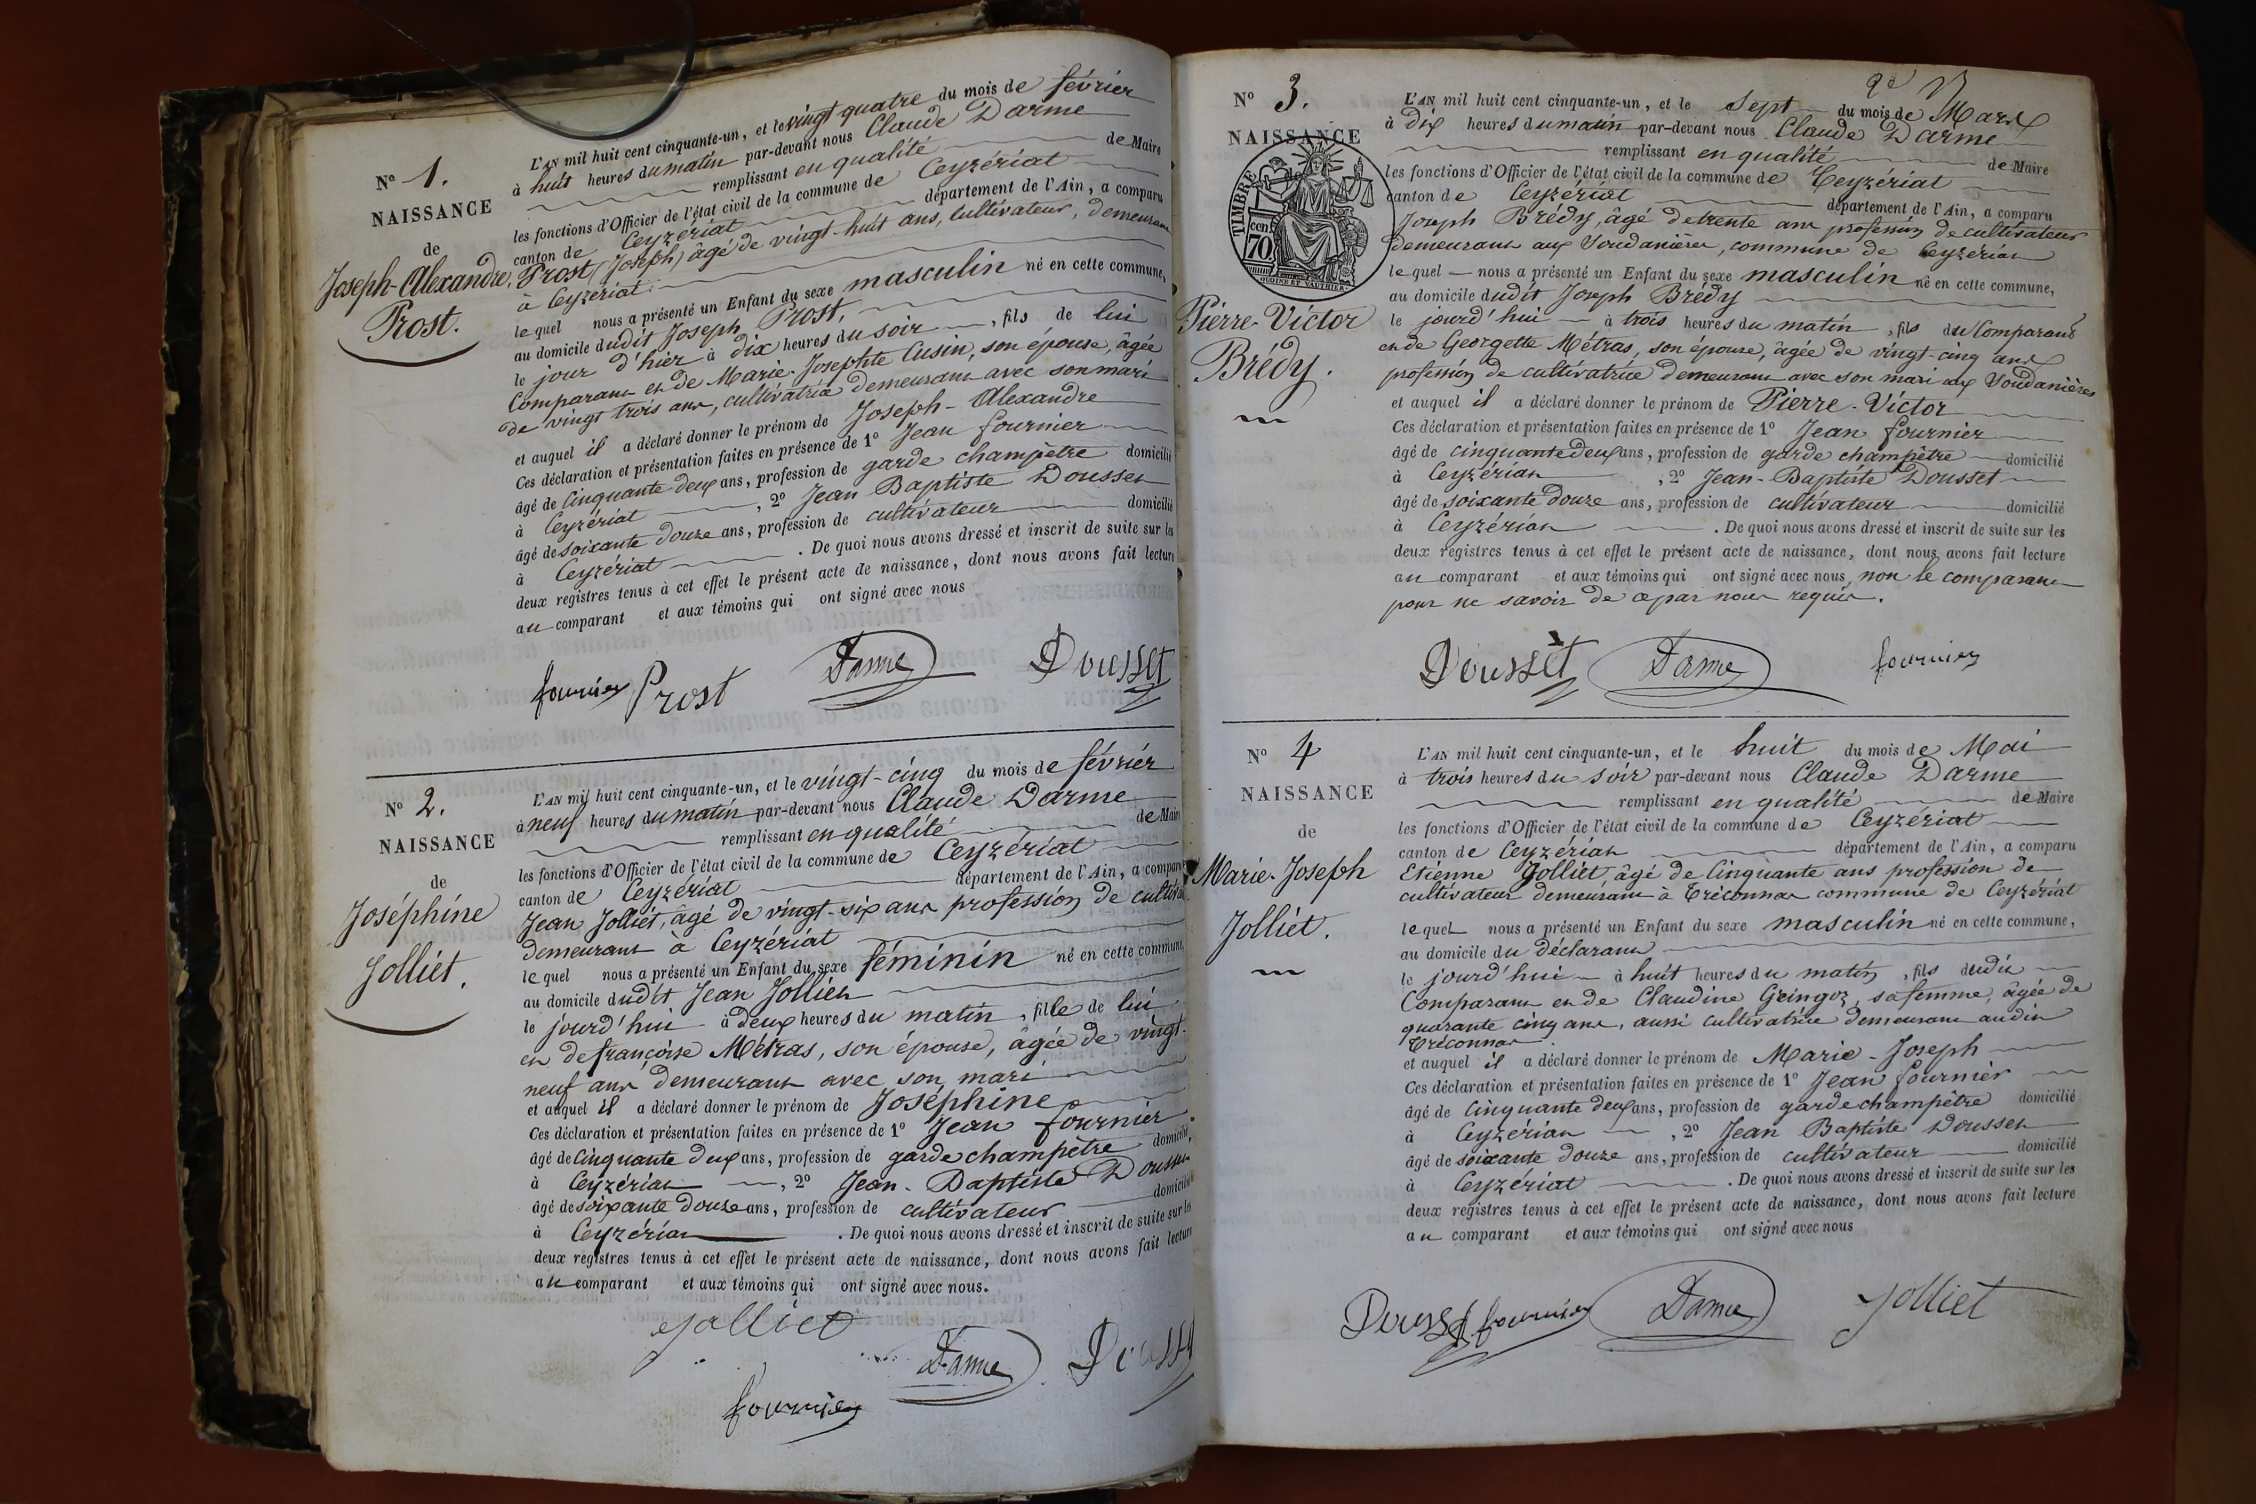 N° 1.
NAISSANCE
de
Joseph-Alexandre
Prost.
L'AN mil huit cent cinquante-un, et le vingt quatre du mois de février
à huit heures du matin par-devant nous Claude Darme
remplissant en qualité de Maire
les fonctions d'Officier de l'état civil de la commune de Ceyzériat
canton de Ceyzériat département de l'Ain, a comparu
Prost (Joseph) âgé de vingt-huit ans, cultivateur, demeurant
à Ceyzériat.
lequel nous a présenté un Enfant du sexe masculin né en cette commune,
au domicile dudit Joseph Prost,
le jour d'hier à dix heures du soir, fils de lui
Comparant et de Marie-Josephte Cusin, son épouse, âgée
de vingt trois ans, cultivatrice demeurant avec son mari
et auquel il a déclaré donner le prénom de Joseph-Alexandre
Ces déclaration et présentation faites en présence de 1° Jean fournier
âgé de Cinquante deux ans, profession de garde champêtre domicilié
à Ceyzériat, 2° Jean Baptiste Dousset
âgé de soixante douze ans, profession de cultivateur domicilié
à Ceyzériat. De quoi nous avons dressé et inscrit de suite sur les
deux registres tenus à cet effet le présent acte de naissance, dont nous avons fait lecture
au comparant et aux témoins qui ont signé avec nous
fournier Prost Darme Dousset
N° 2.
NAISSANCE
de
Joséphine
Jolliet.
L'AN mil huit cent cinquante-un, et le vingt-cinq du mois de février
à neuf heures du matin par-devant nous Claude Darme
remplissant en qualité de Maire
les fonctions d'Officier de l'état civil de la commune de Ceyzériat
canton de Ceyzériat département de l'Ain, a comparu
Jean Jolliet, âgé de vingt-six ans profession de
demeurant à Ceyzériat
lequel nous a présenté un Enfant du sexe féminin né en cette commune,
au domicile dudit Jean Jolliet
le jourd'hui à deux heures du matin, fille de lui
et de françoise Métras, son épouse, âgée de vingt-
neuf ans demeurant avec son mari
et auquel il a déclaré donner le prénom de Joséphine
Ces déclaration et présentation faites en présence de 1° Jean fournier
âgé de Cinquante deux ans, profession de garde champêtre domicilié
à Ceyzériat, 2° Jean-Baptiste Dousset
âgé de soixante douze ans, profession de cultivateur domicilié
à Ceyzériat. De quoi nous avons dressé et inscrit de suite sur les
deux registres tenus à cet effet le présent acte de naissance, dont nous avons fait lecture
au comparant et aux témoins qui ont signé avec nous.
Jolliet
Darme Dousset
fournier
N° 3.
NAISSANCE
TIMBRE
cen. 70
Pierre-Victor
Brédy.
L'AN mil huit cent cinquante-un, et le Sept du mois de Mars
à dix heures du matin par-devant nous Claude Darme
remplissant en qualité de Maire
les fonctions d'Officier de l'état civil de la commune de Ceyzériat
canton de Ceyzériat département de l'Ain, a comparu
Joseph Brédy, âgé de trente ans profession de cultivateur
demeurant aux Soudanières, commune de Ceyzériat
lequel nous a présenté un Enfant du sexe masculin né en cette commune,
au domicile dudit Joseph Brédy
le jourd'hui à trois heures du matin, fils du Comparant
et de Georgette Métras, son épouse, âgée de vingt-cinq ans
profession de cultivatrice demeurant avec son mari aux Soudanières
et auquel il a déclaré donner le prénom de Pierre-Victor
Ces déclaration et présentation faites en présence de 1° Jean fournier
âgé de cinquante deux ans, profession de garde champêtre domicilié
à Ceyzériat, 2° Jean-Baptiste Dousset
âgé de soixante douze ans, profession de cultivateur domicilié
à Ceyzériat. De quoi nous avons dressé et inscrit de suite sur les
deux registres tenus à cet effet le présent acte de naissance, dont nous avons fait lecture
au comparant et aux témoins qui ont signé avec nous, non le comparant
pour ne savoir de ce par nous requis.
Dousset Darme fournier
N° 4
NAISSANCE
de
Marie-Joseph
Jolliet.
L'AN mil huit cent cinquante-un, et le huit du mois de Mai
à trois heures du soir par-devant nous Claude Darme
remplissant en qualité de Maire
les fonctions d'Officier de l'état civil de la commune de Ceyzériat
canton de Ceyzériat département de l'Ain, a comparu
Etienne Jolliet âgé de Cinquante ans profession de
cultivateur demeurant à Tréconnas commune de Ceyzériat
lequel nous a présenté un Enfant du sexe masculin né en cette commune,
au domicile du déclarant
le jourd'hui à huit heures du matin, fils dudit
Comparant et de Claudine Gringoz, sa femme, âgée de
quarante cinq ans, aussi cultivatrice demeurant audit
Tréconnas.
et auquel il a déclaré donner le prénom de Marie-Joseph
Ces déclaration et présentation faites en présence de 1° Jean fournier
âgé de Cinquante deux ans, profession de garde champêtre domicilié
à Ceyzériat, 2° Jean Baptiste Dousset
âgé de soixante douze ans, profession de cultivateur domicilié
à Ceyzériat. De quoi nous avons dressé et inscrit de suite sur les
deux registres tenus à cet effet le présent acte de naissance, dont nous avons fait lecture
au comparant et aux témoins qui ont signé avec nous
Dousset fournier Darme Jolliet